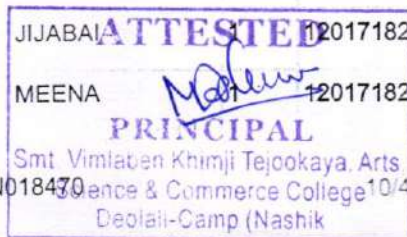 JIJABAI 1 12017182
ATTESTED
MEENA 1 12017182
PRINCIPAL
Smt. Vimlaben Khimji Tejookaya, Arts
N018470 10/4
Science & Commerce College
Deolali-Camp (Nashik